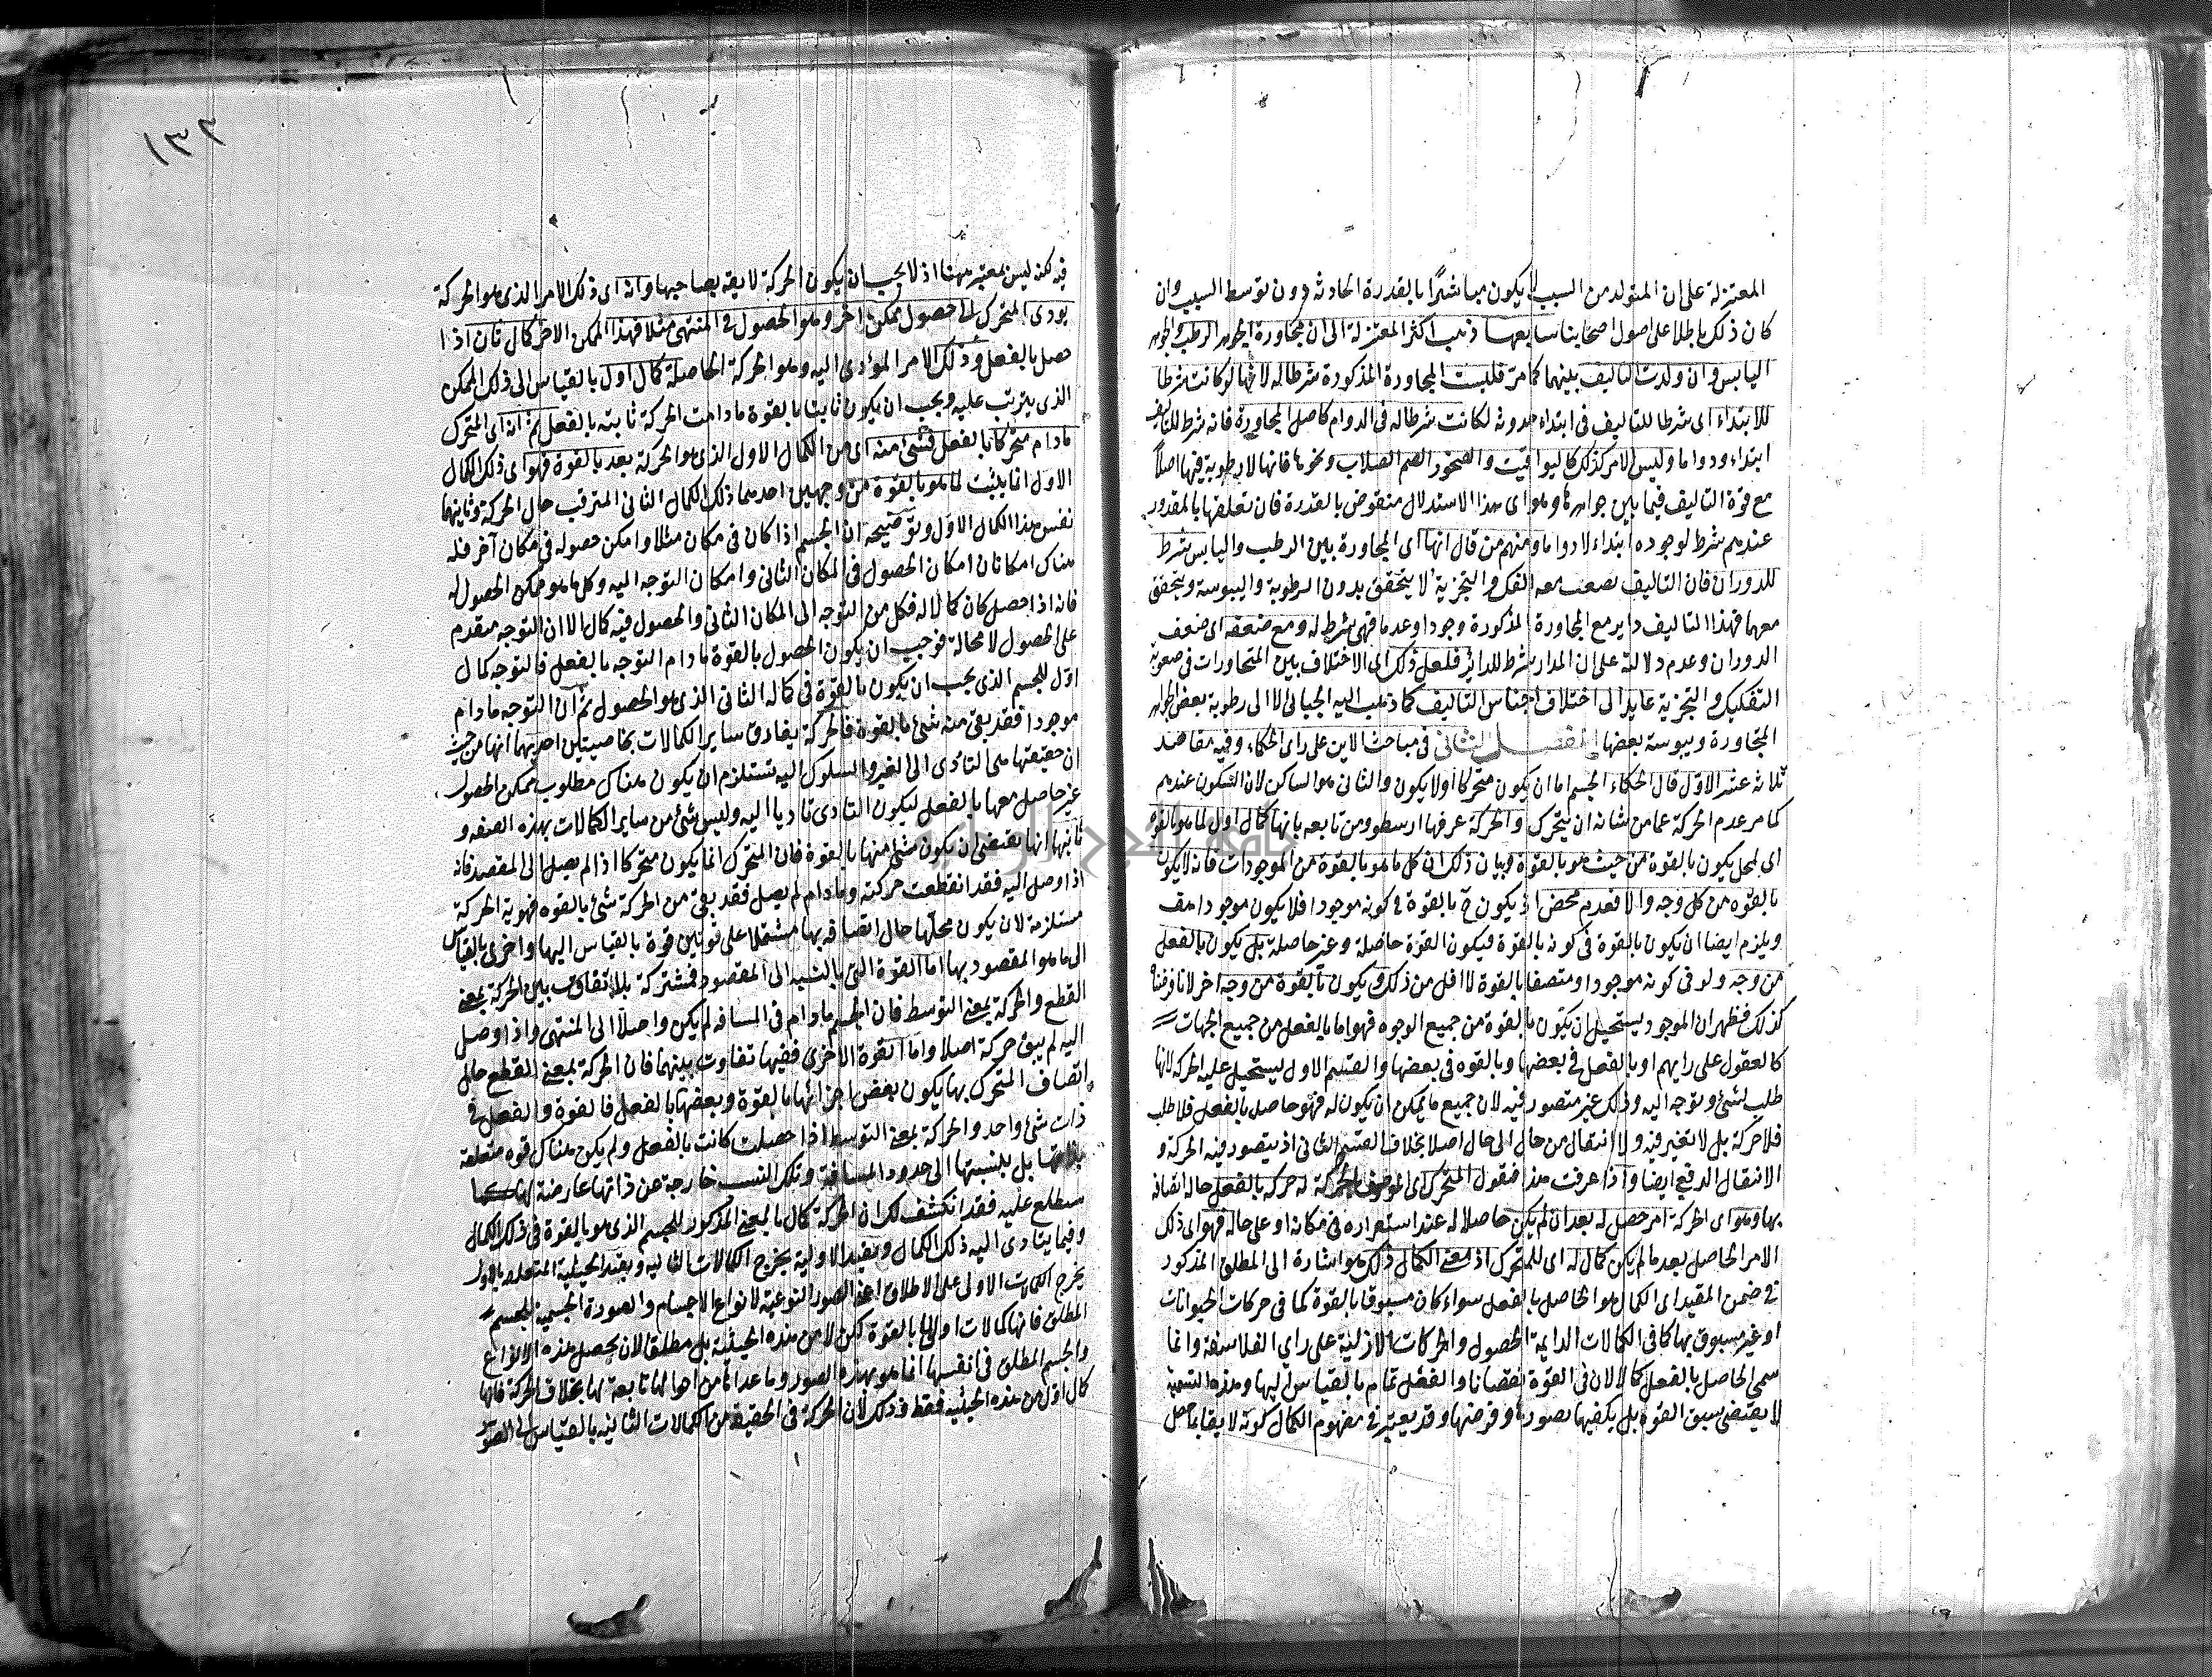 المعتزلة على ان المتولد من السبب لا يكون مباشرا بالقدرة الحادثة دون توسط السبب وان
كان ذلك باطلا على اصول اصحابنا سابعها ذهب اكثر المعتزلة الى ان مجاورة الجوهر الرطب والجوهر
اليابس وان ولدت التاليف بينهما كما مر فليست المجاورة المذكورة شرطا له لانها لو كانت شرطا
للابتداء اى شرطا للتاليف فى ابتداء حدوثه لكانت شرطا له فى الدوام كاصل المجاورة فانه شرط للتاليف
ابتداء ودواما وليس الامر كذلك كاليواقيت والصخور الصم الصلاب ونحوها فانها لا رطوبة فيها اصلا
مع قوة التاليف فيما بين جواهرها وهو اى هذا الاستدلال منقوض بالقدرة فان تعلقها بالمقدور
عندهم شرط لوجوده ابتداء لا دواما ومنهم من قال انها اى المجاورة بين الرطب واليابس شرط
للدوران فان التاليف يصعب معه الفك والتجزية لا يتحقق بدون الرطوبة واليبوسة ويتحقق
معها فهذا التاليف داير مع المجاورة المذكورة وجودا وعدما فهى شرط له ومع ضعفه اى ضعف
الدوران وعدم دلالته على ان المدار شرط للدائر فلعل ذلك اى الاختلاف بين المتجاورات فى صعوبة
التفكيك والتجزية عايد الى اختلاف اجناس التاليف كما ذهب اليه الجبائى لا الى رطوبة بعض الجواهر
المتجاورة ويبوسة بعضها الفصل الثانى فى مباحث الاين على راى الحكاء وفيه مقاصد
ثلاثة عشر الاول قال الحكاء الجسم اما ان يكون متحركا او لا يكون والثانى هو الساكن لان السكون عندهم
كما مر عدم الحركة عما من شانه ان يتحرك والحركة عرفها ارسطو ومن تابعه بانها كمال اول لما هو بالقوة
اى لمحل يكون بالقوة من حيث هو بالقوة وبيان ذلك ان كل ما هو بالقوة من الموجودات فانه لا يكون
بالقوه من كل وجه والا فعدم محض اذ يكون ح بالقوة فى كونه موجودا فلا يكون موجودا هف
ويلزم ايضا ان يكون بالقوة فى كونه بالقوة فيكون القوة حاصلة وغير حاصلة بل يكون بالفعل
من وجه ولو فى كونه موجودا ومتصفا بالقوة لا اقل من ذلك ويكون بالقوة من وجه اخر لانا فرضناه
كذلك فظهر ان الموجود يستحيل ان يكون بالقوة من جميع الوجوه فهو اما بالفعل من جميع الجهات
كالعقول على رايهم او بالفعل فى بعضها وبالقوه فى بعضها والقسم الاول يستحيل عليه الحركة لانها
طلب لشئ وتوجه اليه وذلك غير متصور فيه لان جميع ما يمكن ان يكون له فهو حاصل بالفعل فلا طلب
فلا حركة بل لا تغير فيه ولا انتقال من حال الى حال اصلا بخلاف القسم الثانى اذ يتصور فيه الحركة و
الانتقال الدفعى ايضا واذا عرفت هذا فنقول المتحرك اى الموصوف بالحركة له حركة بالفعل حالة اتصافه
بها وهو اى الحركة امر حصل له بعد ان لم يكن حاصلا له عند استقراره فى مكانه او على حاله فهو اى ذلك
الامر الحاصل بعد ما لم يكن كمال له اى للمتحرك اذ معنى الكمال ذلك هو اشارة الى المطلق المذكور
فى ضمن المقيد اى الكمال هو الحاصل بالفعل سواء كان مسبوقا بالقوة كما فى حركات الحيوانات
او غير مسبوق بها كما فى الكمالات الدايمة الحصول والحركات الازلية على راى الفلاسفة وانما
سمى الحاصل بالفعل كمالا لان فى القوة نقصانا والفعل تمام بالقياس اليها وهذه التسمية
لا يقتضى سبق القوة بل يكفيها تصورها وفرضها وقد يعتبر فى مفهوم الكمال كونه لايقا بما حصل
فيه لكنه ليس بمعتبر ههنا اذ لا يجب ان يكون الحركة لايقة بصاحبها وانه اى ذلك الامر الذى هو الحركة
يودى المتحرك الى حصول ممكن اخر وهو الحصول فى المنتهى مثلا فهذا الممكن الاخر كمال ثان اذا
حصل بالفعل وذلك الامر المؤدى اليه وهو الحركة الحاصلة كمال اول بالقياس الى ذلك الممكن
الذى يترتب عليه ويجب ان يكون ثابتا بالقوة ما دامت الحركة ثابتة بالفعل ثم انه اى المتحرك
مادام متحركا بالفعل فشئ منه اى من الكمال الاول الذى هو الحركة بعد بالقوة فهو اى ذلك الكمال
الاول انما يثبت لما هو بالقوة من وجهين احدهما ذلك الكمال الثانى المترقب حال الحركة وثانيهما
نفس هذا الكمال الاول وتوضيحه ان الجسم اذا كان فى مكان مثلا وامكن حصوله فى مكان آخر فله
هناك امكانان امكان الحصول فى المكان الثانى وامكان التوجه اليه وكل ما هو ممكن الحصول له
فانه اذا حصل كان كمالا له فكل من التوجه الى المكان الثانى والحصول فيه كمال الا ان التوجه متقدم
على الحصول لا محالة فوجب ان يكون الحصول بالقوة مادام التوجه بالفعل فالتوجه كمال
اول للجسم الذى يجب ان يكون بالقوة فى كماله الثانى الذى هو الحصول ثم ان التوجه مادام
موجودا فقد بقى منه شئ بالقوة فالحركة يفارق ساير الكمالات بخاصيتين احديهما انها من حيث
ان حقيقتها هى التأدى الى الغير والسلوك اليه تستلزم ان يكون هناك مطلوب ممكن الحصول
غير حاصل معها بالفعل ليكون التادى تاديا اليه وليس شئ من ساير الكمالات بهذه الصفه و
ثانيها انها يقتضى ان يكون شئ منها بالقوة فان المتحرك انما يكون متحركا اذا لم يصل الى المقصد فانه
اذا وصل اليه فقد انقطعت حركته ومادام لم يصل فقد بقى من الحركة شئ بالقوه فهوية الحركة
مستلزمة لان يكون محلها حال اتصافه بها مشتملا على قوتين قوة بالقياس اليها واخرى بالقياس
الى ما هو المقصود بها اما القوة التى بالنسبة الى المقصود فمشتركة بلا تفاوت بين الحركة بمعنى
القطع والحركة بمعنى التوسط فان الجسم مادام فى المسافه لم يكن واصلا الى المنتهى واذا وصل
اليه لم يبق حركة اصلا واما القوة الاخرى ففيها تفاوت بينهما فان الحركة بمعنى القطع حال
اتصاف المتحرك بها يكون بعض اجزائها بالقوة وبعضها بالفعل فالقوة والفعل فى
ذات شئ واحد والحركة بمعنى التوسط اذا حصلت كانت بالفعل ولم يكن هناك قوه متعلقة
بذاتها بل بنسبتها الى حدود المسافة وتلك النسب خارجة عن ذاتها عارضة لها كما
ستطلع عليه فقد انكشف لك ان الحركة كمال بالمعنى المذكور للجسم الذى هو بالقوة فى ذلك الكمال
وفيما يتادى اليه ذلك الكمال وبقيد الاولية يخرج الكمالات الثانيه وبقيد الحيثية المتعلقة بالاول
يخرج الكمالات الاولى على الاطلاق اعنى الصور النوعية لانواع الاجسام والصورة الجسمية للجسم
المطلق فانها كمالات اولى لما بالقوة لكن لا من هذه الحيثية بل مطلقا لان تحصل هذه الانواع
والجسم المطلق فى انفسها انما هو بهذه الصور وما عداها من احوالها تابعة لها بخلاف الحركة فانها
كمال اول من هذه الحيثيه فقط وذلك لان الحركة فى الحقيقة من الكمالات الثانية بالقياس الى الصور
١٣٢